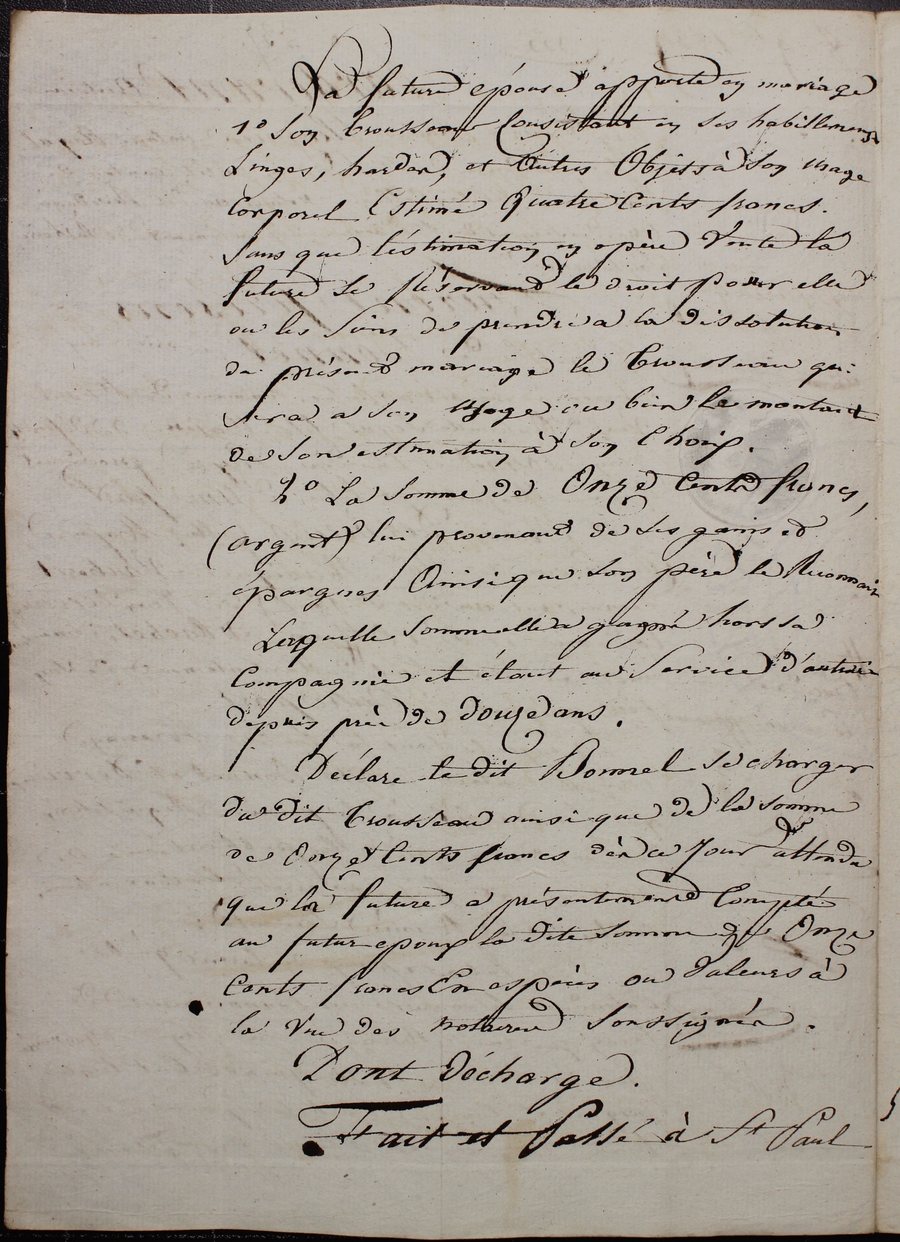 La future épouse apporte en mariage
1° Son trousseau Consistant en ses habillemens
Linges, hardes, et Autres Objets à Son usage
Corporel Estimé Quatre Cents francs.
Sans que l'éstimation en opère Vente la
future se Réservant le droit pour elle
ou les Siens de prendre a la dissolution
du présent mariage le trousseau qui
sera a son usage ou bien le montant
de son estimation à son Choix.
2° La somme de Onze Cents francs,
(argent) lui provenant de ses gains et
épargnes Ainsi que son père le Reconnait
Lesquelle somme elle a gagné hors sa
Compagnie et étant au Service d'autrui
depuis près de douze ans.
Déclare le dit Bonnel se charger
du dit trousseau ainsi que de la somme
de Onze Cents francs dès ce Jour attendu
que la future a présentement Compté
au futur epoux la dite somme de Onze
Cents francs En espèces ou Valeurs à
la Vue des notaires soussignés.
Dont Décharge.
Fait et Passé à St Paul